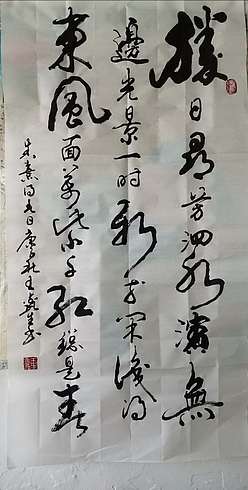 勝日尋芳泗水濱無
邊光景一時新等閒識得
東風面萬紫千紅總是春
朱熹詩春日庚子秋王